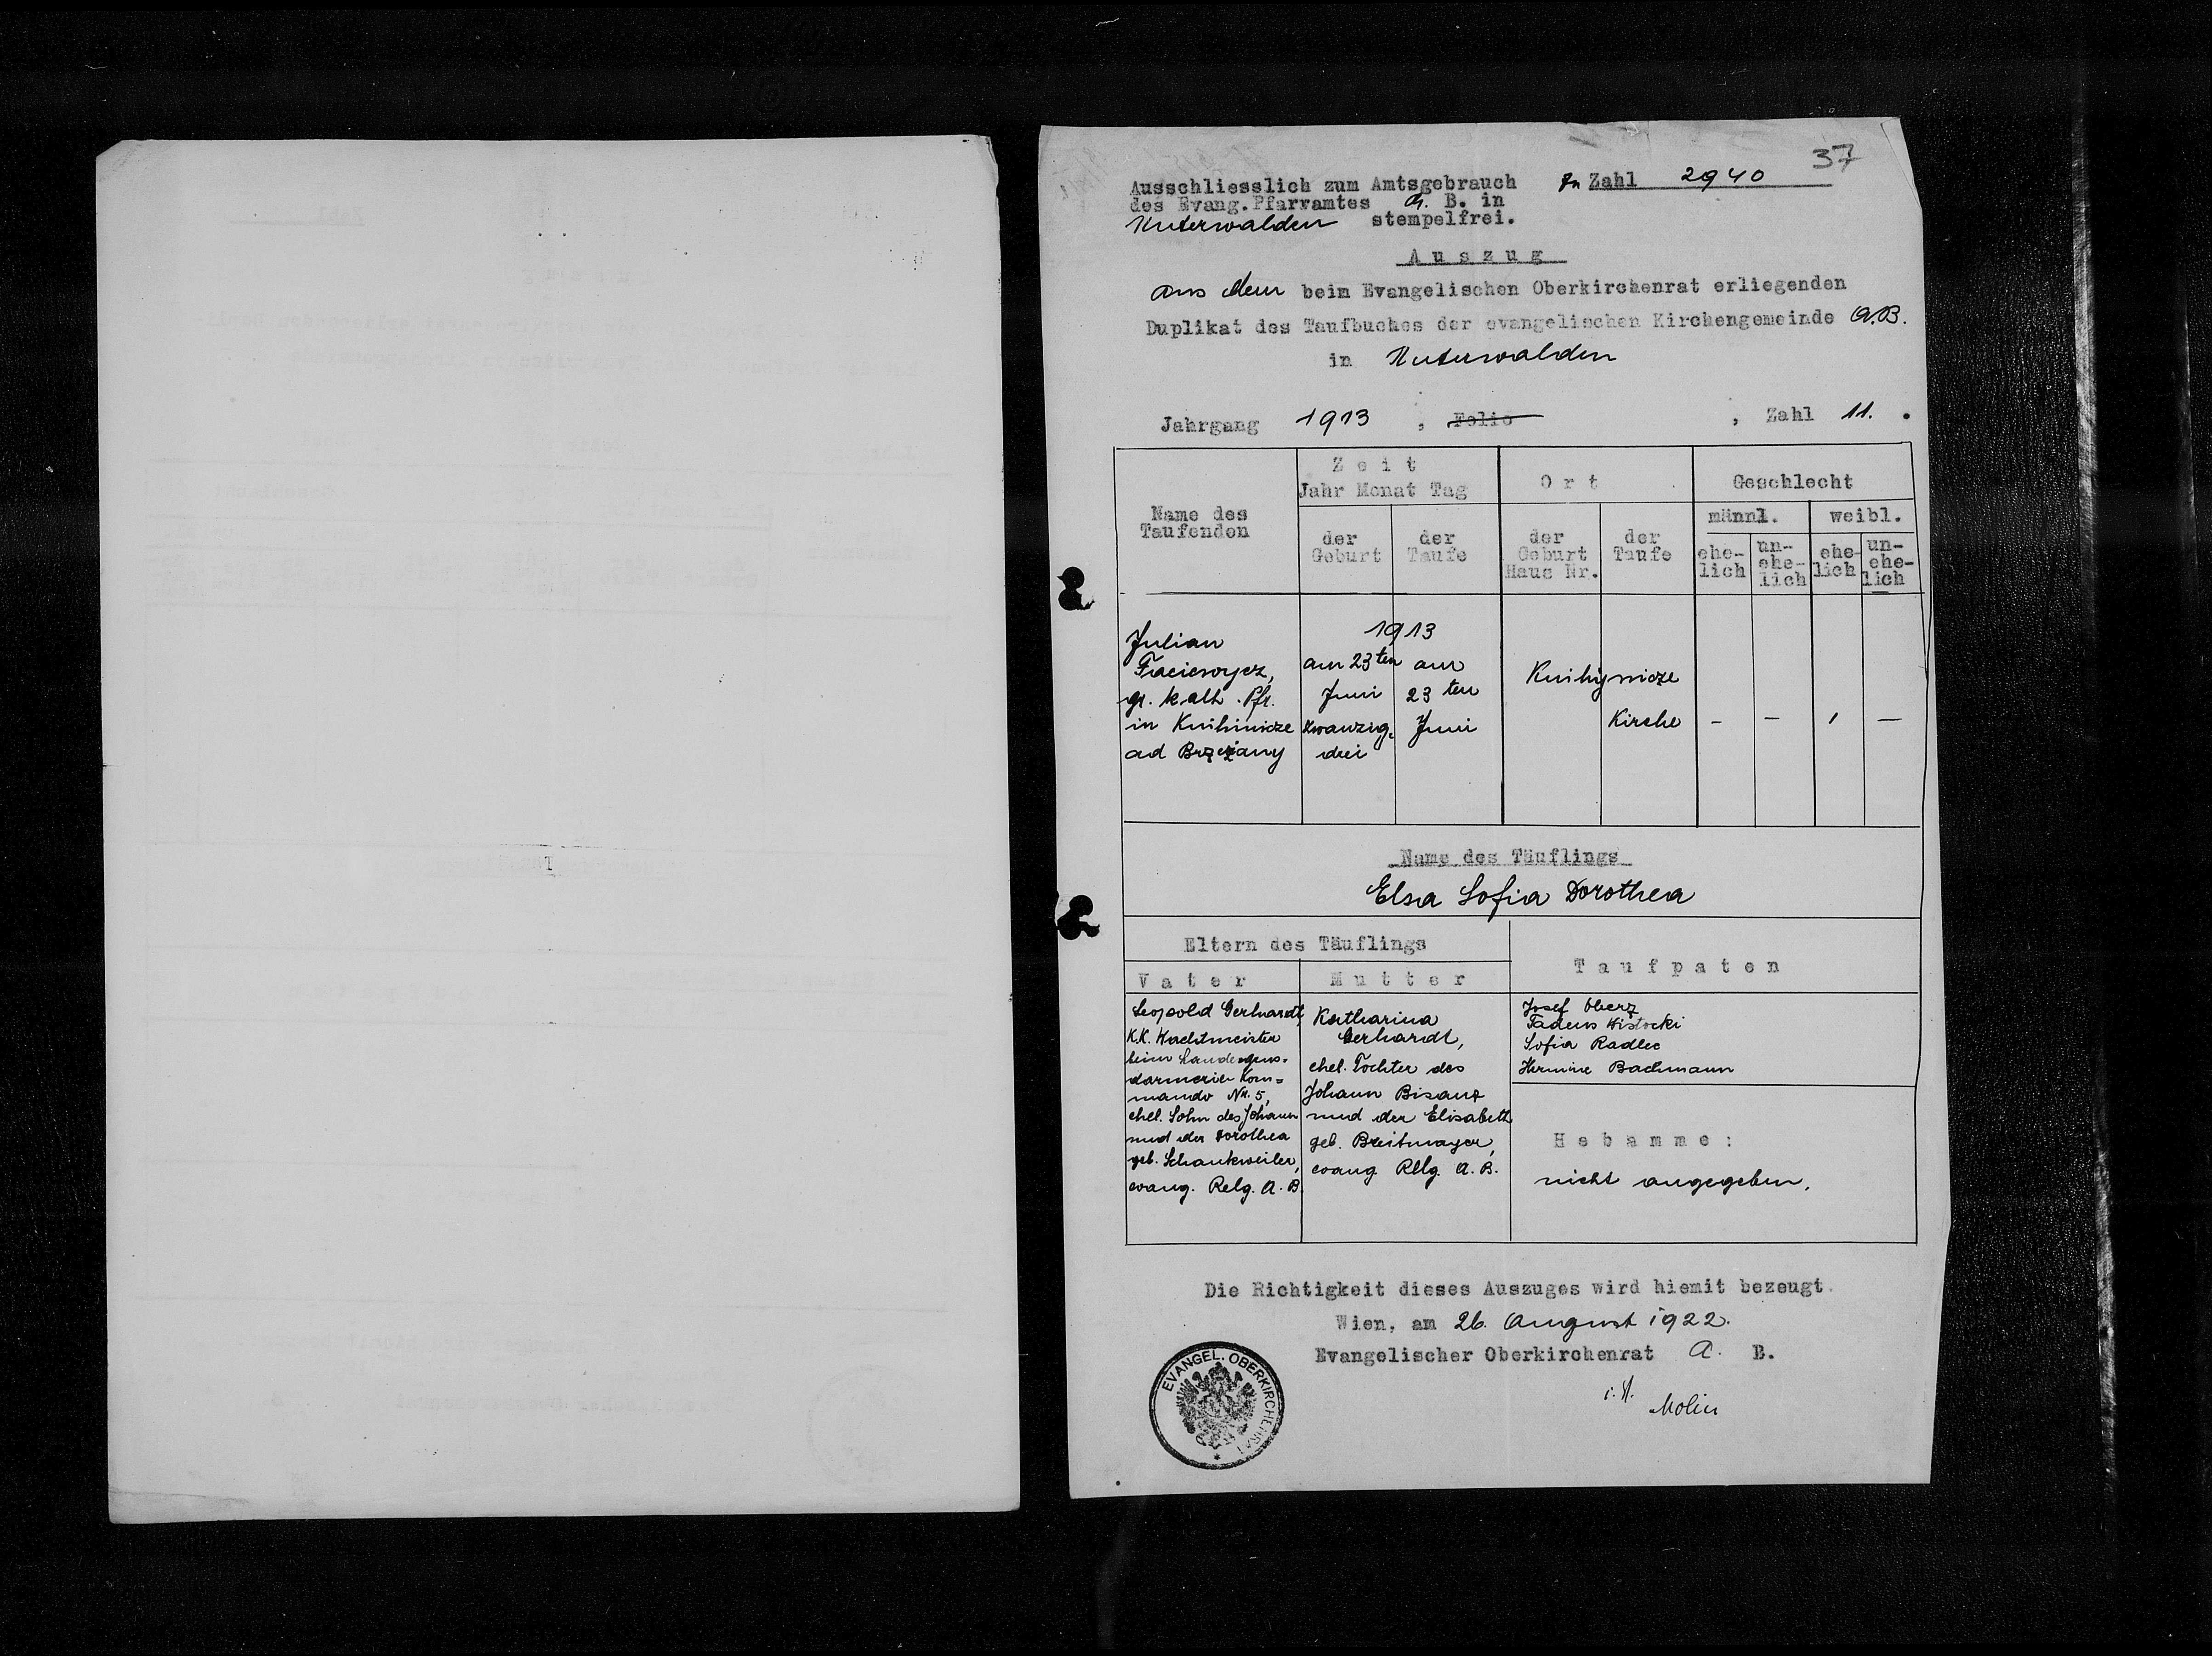 37
Ausschliesslich zum Amtsgebrauch
des Evang. Pfarramtes A. B. in
Unterwalden stempelfrei.
Zu Zahl 2940
Auszug
aus dem beim Evangelischen Oberkirchenrat erliegenden
Duplikat des Taufbuches der evangelischen Kirchengemeinde A.B.
in Unterwalden
Jahrgang 1913, Folio , Zahl 11.
Name des Taufenden
Zeit
Jahr Monat Tag
der Geburt
der Taufe
Ort
der Geburt Haus Nr.
der Taufe
Geschlecht
männl.
weibl.
ehe-lich
un-ehe-lich
ehe-lich
un-ehe-lich
Julian
gr. kath. Pfr.
in Knihinicze
ad Brzeżany
1913
am 23ten
Juni
zwanzig,
drei
am
23ten
Juni
Knihynicze
Kirche
- - 1 -
Name des Täuflings
Elsa Sofia Dorothea
Eltern des Täuflings
Vater
Leopold Gerhardt,
K.K. Wachtmeister
beim Landesgens=
darmerie Kom=
mando Nr. 5,
ehel. Sohn des Johann
und der Dorothea
geb. Schankweiler,
evang. Relg. A. B.
Mutter
Katharina
Gerhardt,
ehel. Tochter des
Johann Bisanz
und der Elisabeth
geb. Breitmayer,
evang. Relg. A. B.
Taufpaten
Josef Oberz
Tadeus Wistocki
Sofia Radlec
Hermine Bachmann
Hebamme:
nicht angegeben.
Die Richtigkeit dieses Auszuges wird hiemit bezeugt.
Wien, am 26. August 1922.
Evangelischer Oberkirchenrat A. B.
EVANGEL. OBERKIRCHENRAT
Molin